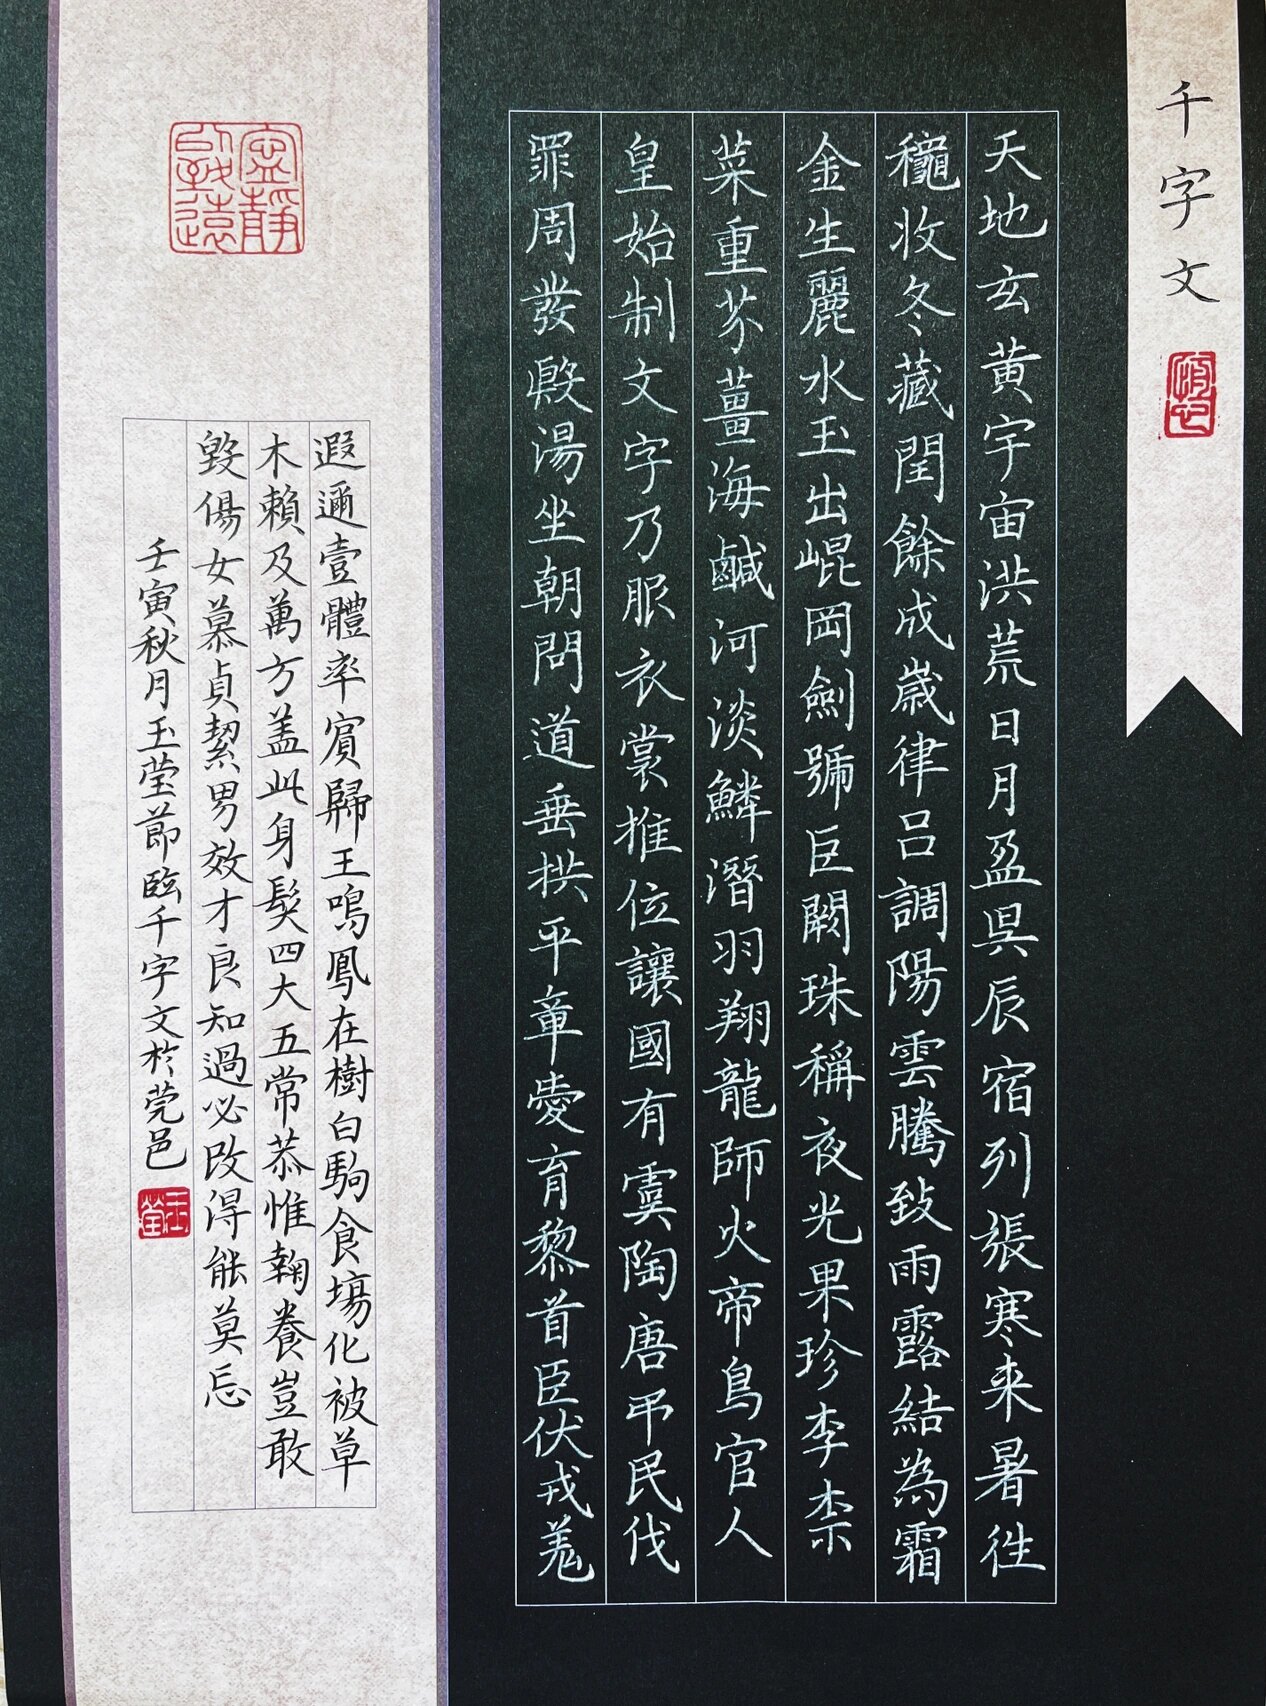 千字文
天地玄黄宇宙洪荒日月盈昃辰宿列張寒来暑往
穐收冬藏閏餘成歲律吕調陽雲騰致雨露結為霜
金生麗水玉出崐岡劍號巨闕珠稱夜光果珍李柰
菜重芥薑海鹹河淡鱗潛羽翔龍師火帝鳥官人
皇始制文字乃服衣裳推位讓國有虞陶唐弔民伐
罪周發殷湯坐朝問道垂拱平章愛育黎首臣伏戎羌
寧靜致遠
遐邇壹體率賓歸王鳴鳳在樹白駒食場化被草
木賴及萬方盖此身髮四大五常恭惟鞠養豈敢
毀傷女慕貞絜男效才良知過必改得能莫忘
壬寅秋月玉莹節臨千字文於莞邑
玉莹